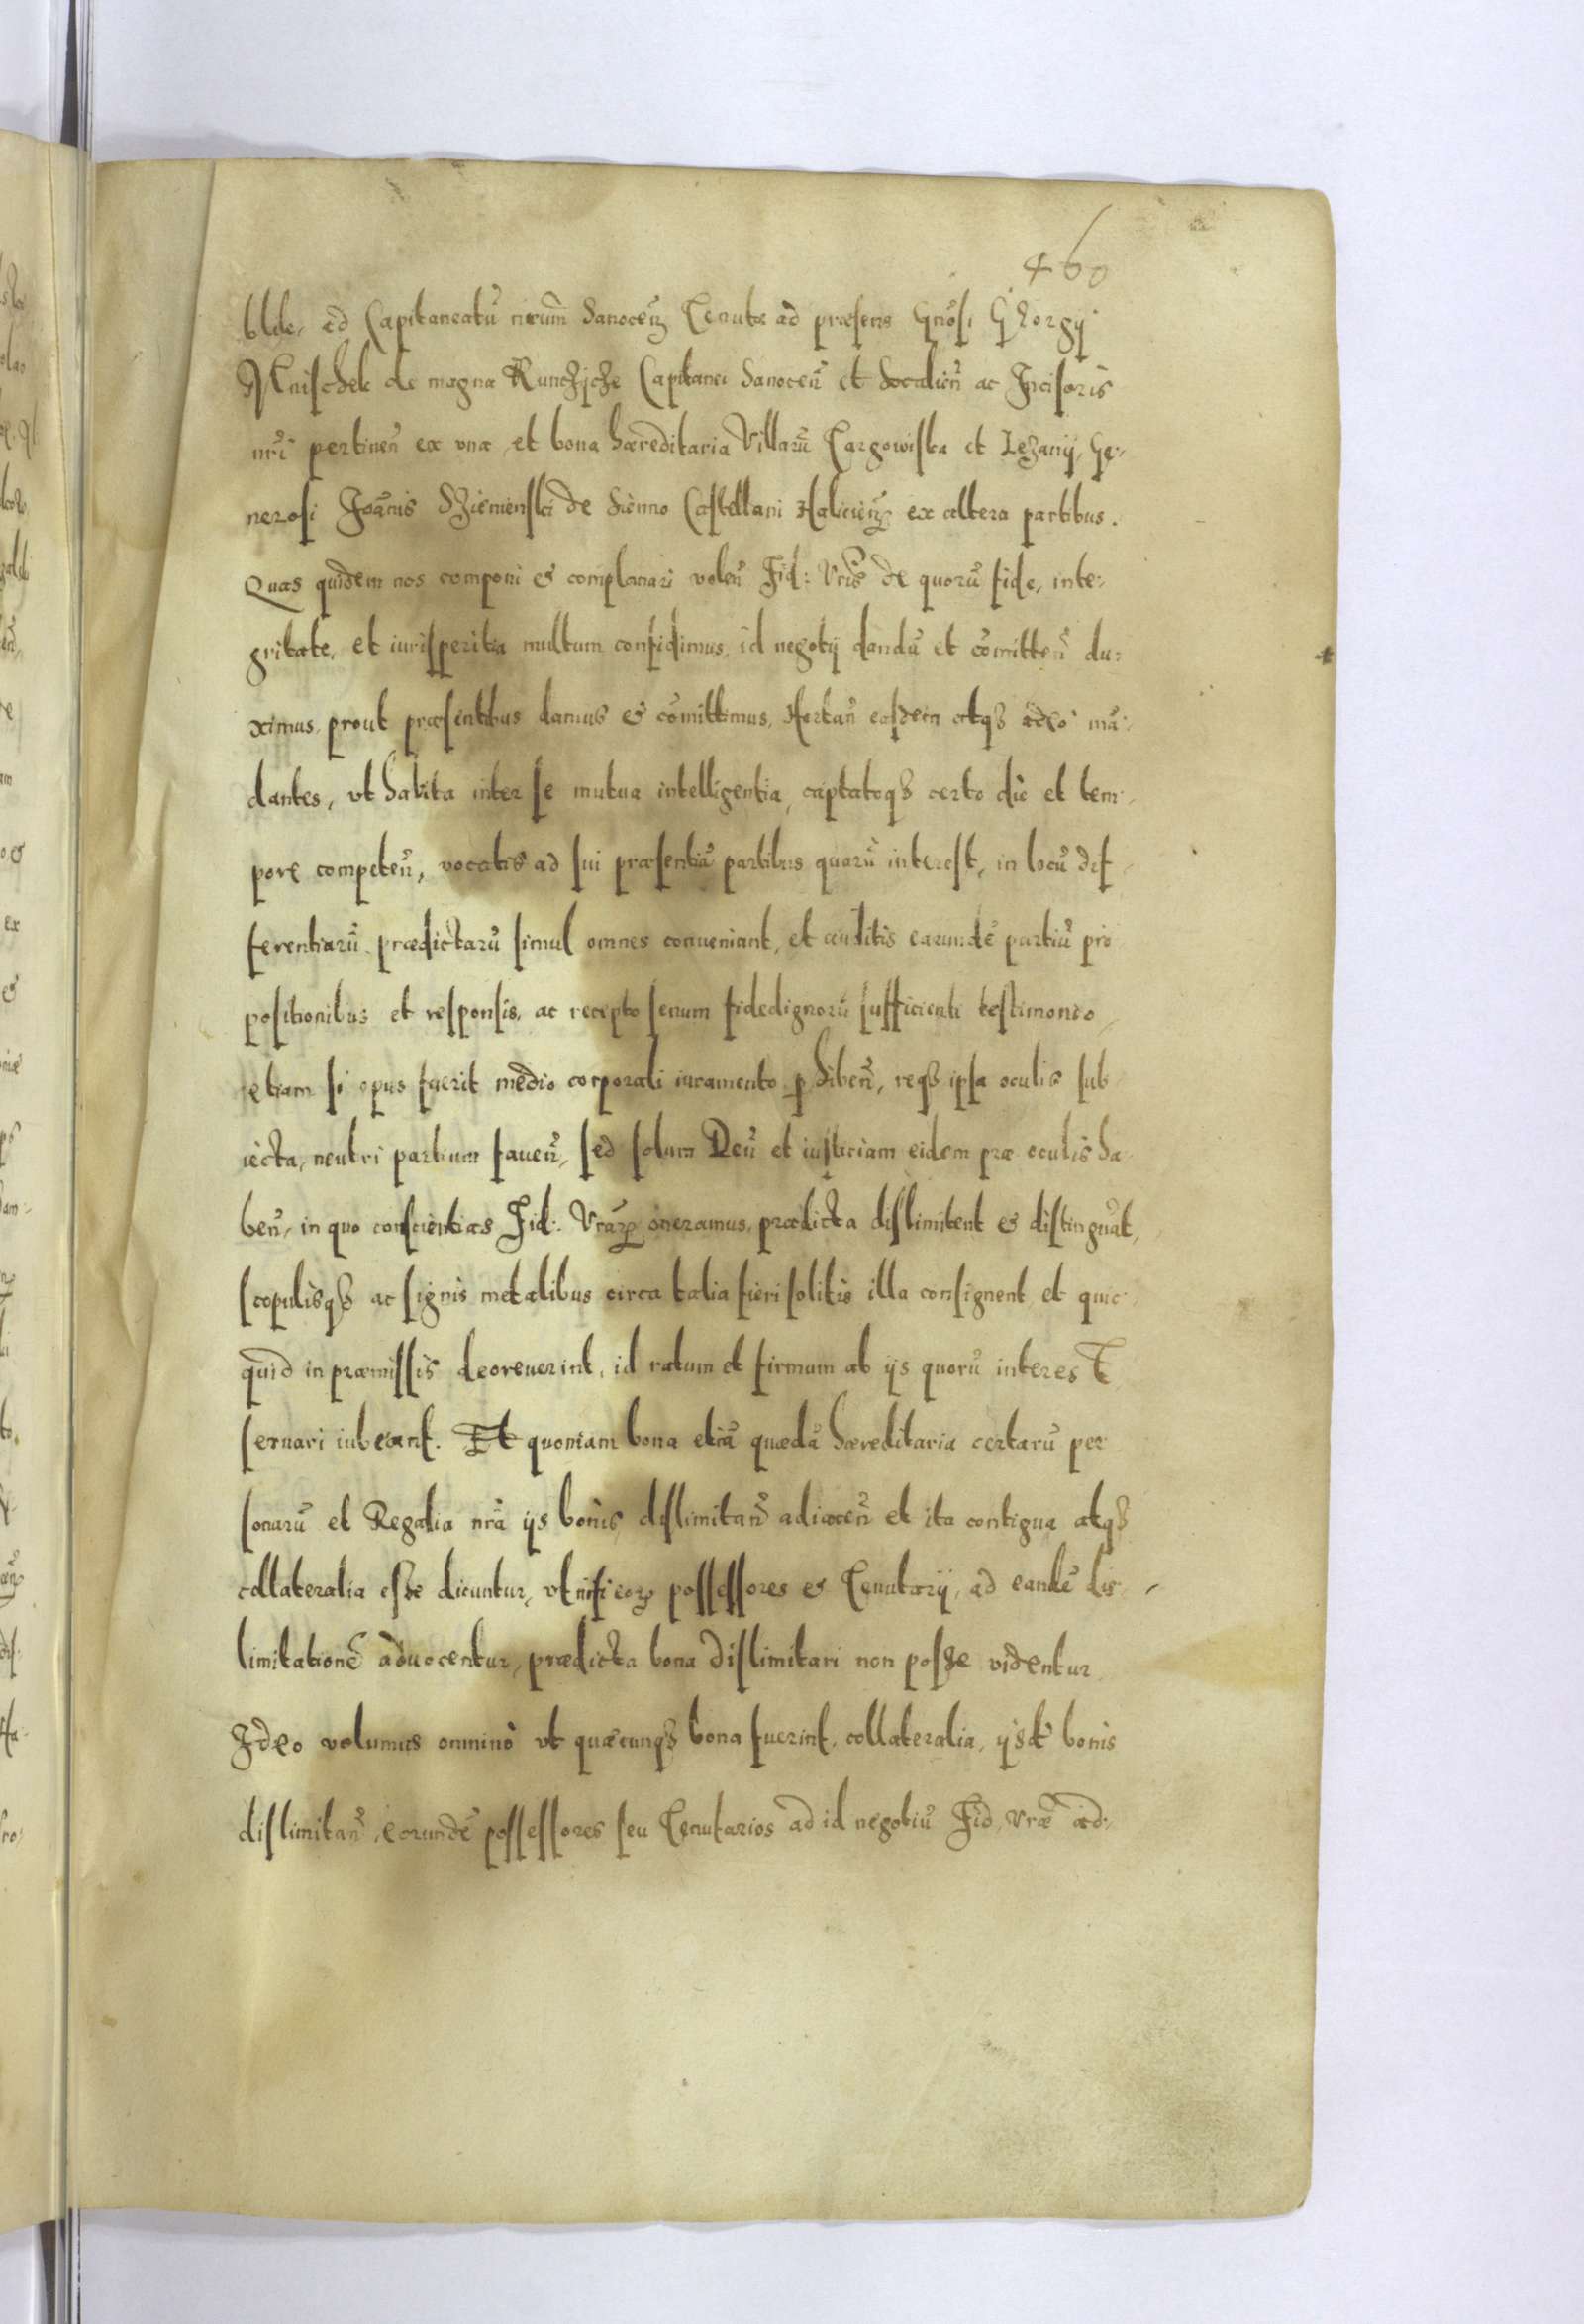 460
blde, ad Capitaneatũ nrum̃ Sanocen̄ Tenutæ ad præsens Gnősi Georgij
Mnischek de magna Kunczÿcze Capitanei Sanocen̄ et Socalien̄ ac Incisoris
nrĩ pertinen̄ ex vna, et bona hæreditaria Villarũ Targowiska et Lezany, Ge:
nerosi Joañis Szieniensķi de Sienno Castellani Halicien̄ ex altera partibus.
Quas quidem nos componi & complanari volen̄ Fid: Vrĩs de quorũ fide, inte:
gritate, et iurisperitia multum confidimus, id negotij dandũ et cõmitten̄ du:
ximus, prout præsentibus damus & cõmittimus, Hortan̄ easdem atqȝ adeo mã:
dantes, vt habita inter se mutua intelligentia, captatoqȝ certo die et tem:
pore competen̄, vocatis ad sui præsentiã partibus quarũ interest, in locũ dif
ferentiarũ prædictarũ simul omnes conueniant, et auditis earundẽ partiũ pro
positionibus et responsis, ac recepto senum fidedignorũ sufficienti testimonio,
etiam si opus fuerit medio corporali iuramento p̱hiben̄, reqȝ ipsa oculis sub
iecta, neutri partium fauen̄, sed solum Deũ et iusticiam eidem præ oculis ha
ben̄, in quo conscientias Fid: Vrarꝝ oneramus, prædicta dislimitent & distinguãt,
scopulisqȝ ac signis metalibus circa talia fieri solitis illa consignent, et quic
quid in præmissis decreuerint, id ratum et firmum ab ijs quorũ interest
seruari iubeant. Et quoniam bona etiã quædã hæreditaria certarũ per
sonarũ et Regalia nrã ijs bonis dislimitan̄ adiacen̄ et ita contigua atqȝ
collateralia esse dicuntur, vt nisi eorꝝ possessores & Tenutarij, ad eandẽ dis
limitationẽ aduocentur, prædicta bona dislimitari non posse videntur
Ideo volumus omninò vt quæcunqȝ bona fuerint, collateralia, ijsdẽ bonis
dislimitan̄, eorundẽ possessores seu Tenutarios ad id negotiũ Fid. vræ ad: